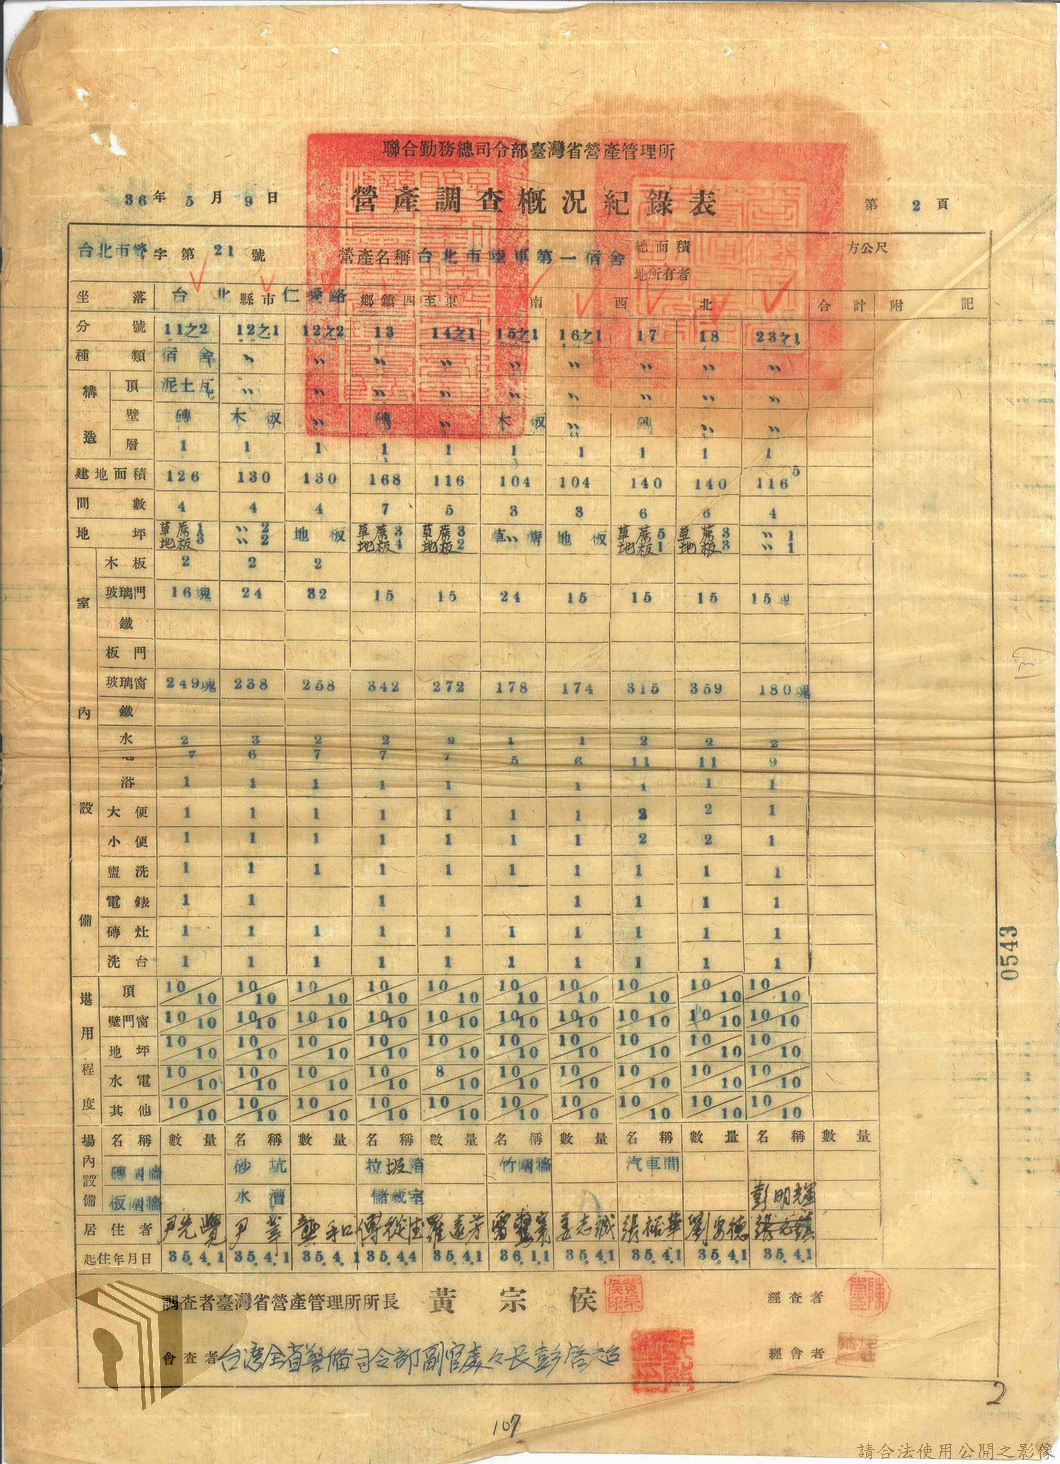 聯合勤務總司令部臺灣省營產管理所
36年 5月 9日 營產調查概況紀錄表 第 2 頁
台北市營字第 21 號 營產名稱 台北市陸軍第一宿舍 總面積 方公尺
地所有者
坐落 台北縣市仁愛路鄉鎮四至東 南 西 北 合計附記
分號 11之2 12之1 12之2 13 14之1 15之1 16之1 17 18 23之1
種類 宿舍 〃 〃 〃 〃 〃 〃 〃 〃 〃
構造 頂 泥土瓦 〃 〃 〃 〃 〃 〃 〃 〃 〃
壁 磚 木板 〃 磚 〃 木板 〃 磚 〃 〃
層 1 1 1 1 1 1 1 1 1 1
建地面積 126 130 130 168 116 104 104 140 140 116⁵
間數 4 4 4 7 5 3 3 6 6 4
地坪 草蓆1 地板3 〃2 〃2 地板 草蓆3 地板4 草蓆3 地板2 地板 草蓆5 地板1 草蓆3 地板3 〃1 〃1
室內設備 木板 2 2 2
玻璃門 16塊 24 32 15 15 24 15 15 15 15塊
鐵
板門
玻璃窗 249塊 238 258 342 272 178 174 315 359 180塊
鐵
水 2 3 2 2 2 1 1 2 2 2
7 6 7 7 7 5 6 11 11 9
浴 1 1 1 1 1 1 1 1 1
大便 1 1 1 1 1 1 1 2 2 1
小便 1 1 1 1 1 1 1 2 2 1
盥洗 1 1 1 1 1 1 1 1 1 1
電錶 1 1 1 1 1 1 1
磚灶 1 1 1 1 1 1 1 1 1 1
洗台 1 1 1 1 1 1 1 1 1 1
堪用程度 頂 10/10 10/10 10/10 10/10 10/10 10/10 10/10 10/10 10/10 10/10
壁門窗 10/10 10/10 10/10 10/10 10/10 10/10 10/10 10/10 10/10 10/10
地坪 10/10 10/10 10/10 10/10 10/10 10/10 10/10 10/10 10/10 10/10
水電 10/10 10/10 10/10 10/10 8/10 10/10 10/10 10/10 10/10 10/10
其他 10/10 10/10 10/10 10/10 10/10 10/10 10/10 10/10 10/10 10/10
場內設備 名稱 數量 名稱 數量 名稱 數量 名稱 數量 名稱 數量 名稱 數量
磚圍牆 砂坑 垃圾箱 竹圍牆 汽車間
板圍牆 水漕 儲藏室
彭明輝
居住者 尹先覺 尹 龔和 傅從 羅遠芳 姜志誠 張 劉 張
起住年月日 35.4.1 35.4.1 35.4.1 35.4.4 35.4.1 36.1.1 35.4.1 35.4.1 35.4.1 35.4.1
調查者臺灣省營產管理所所長 黃宗侯 經查者
會查者 台灣全省警備司令部副官處々長彭啓超 經會者
0543
2
107
請合法使用公開之影像